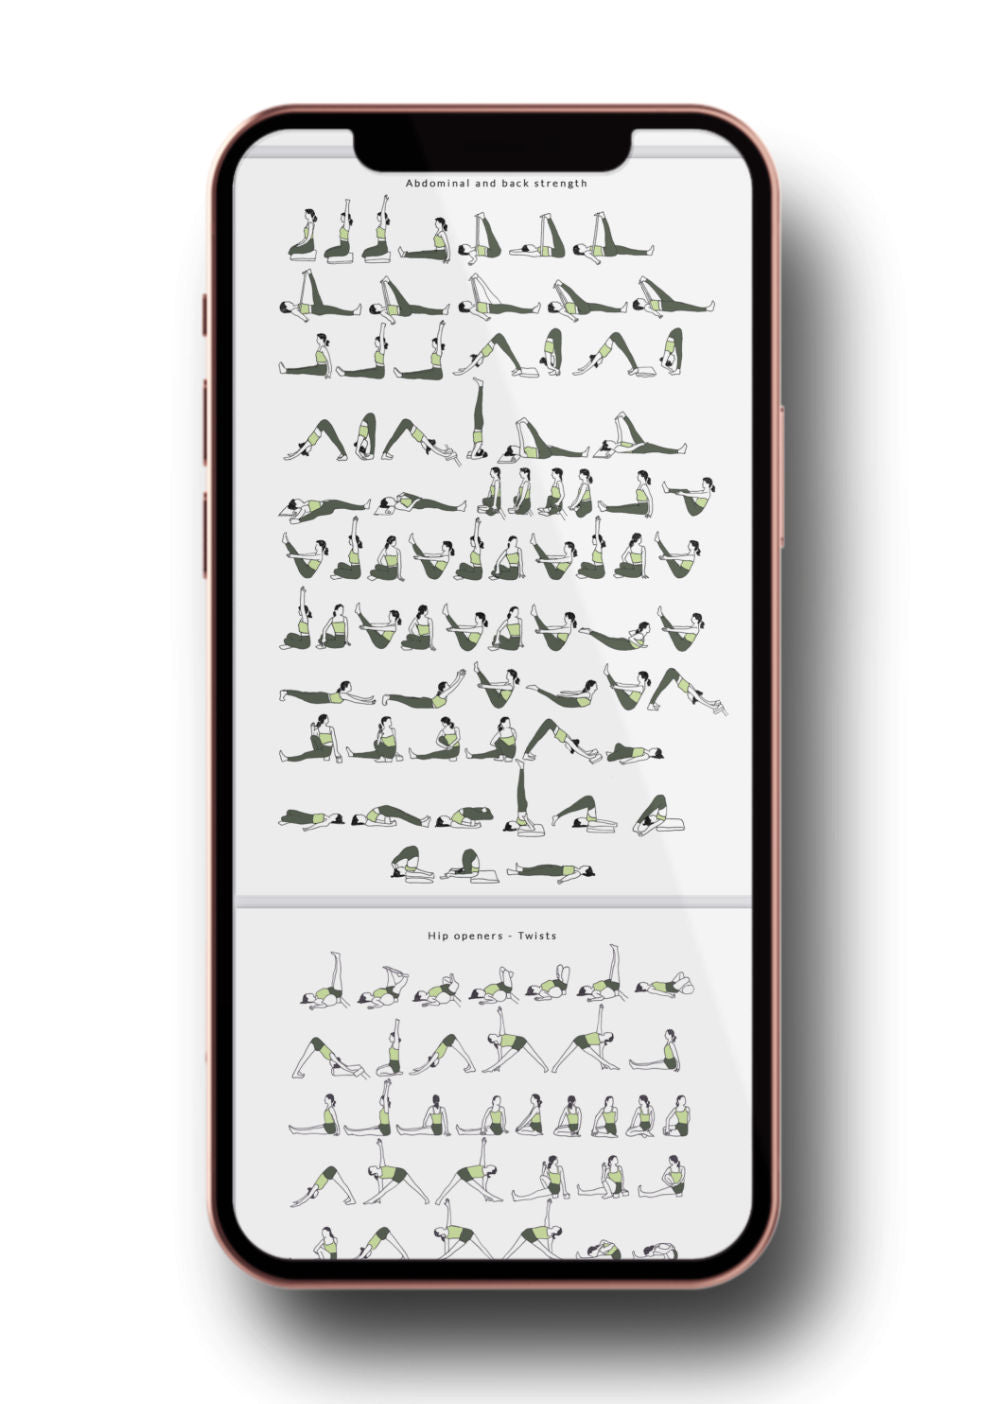 Abdominal and back strength
Hip openers - Twists